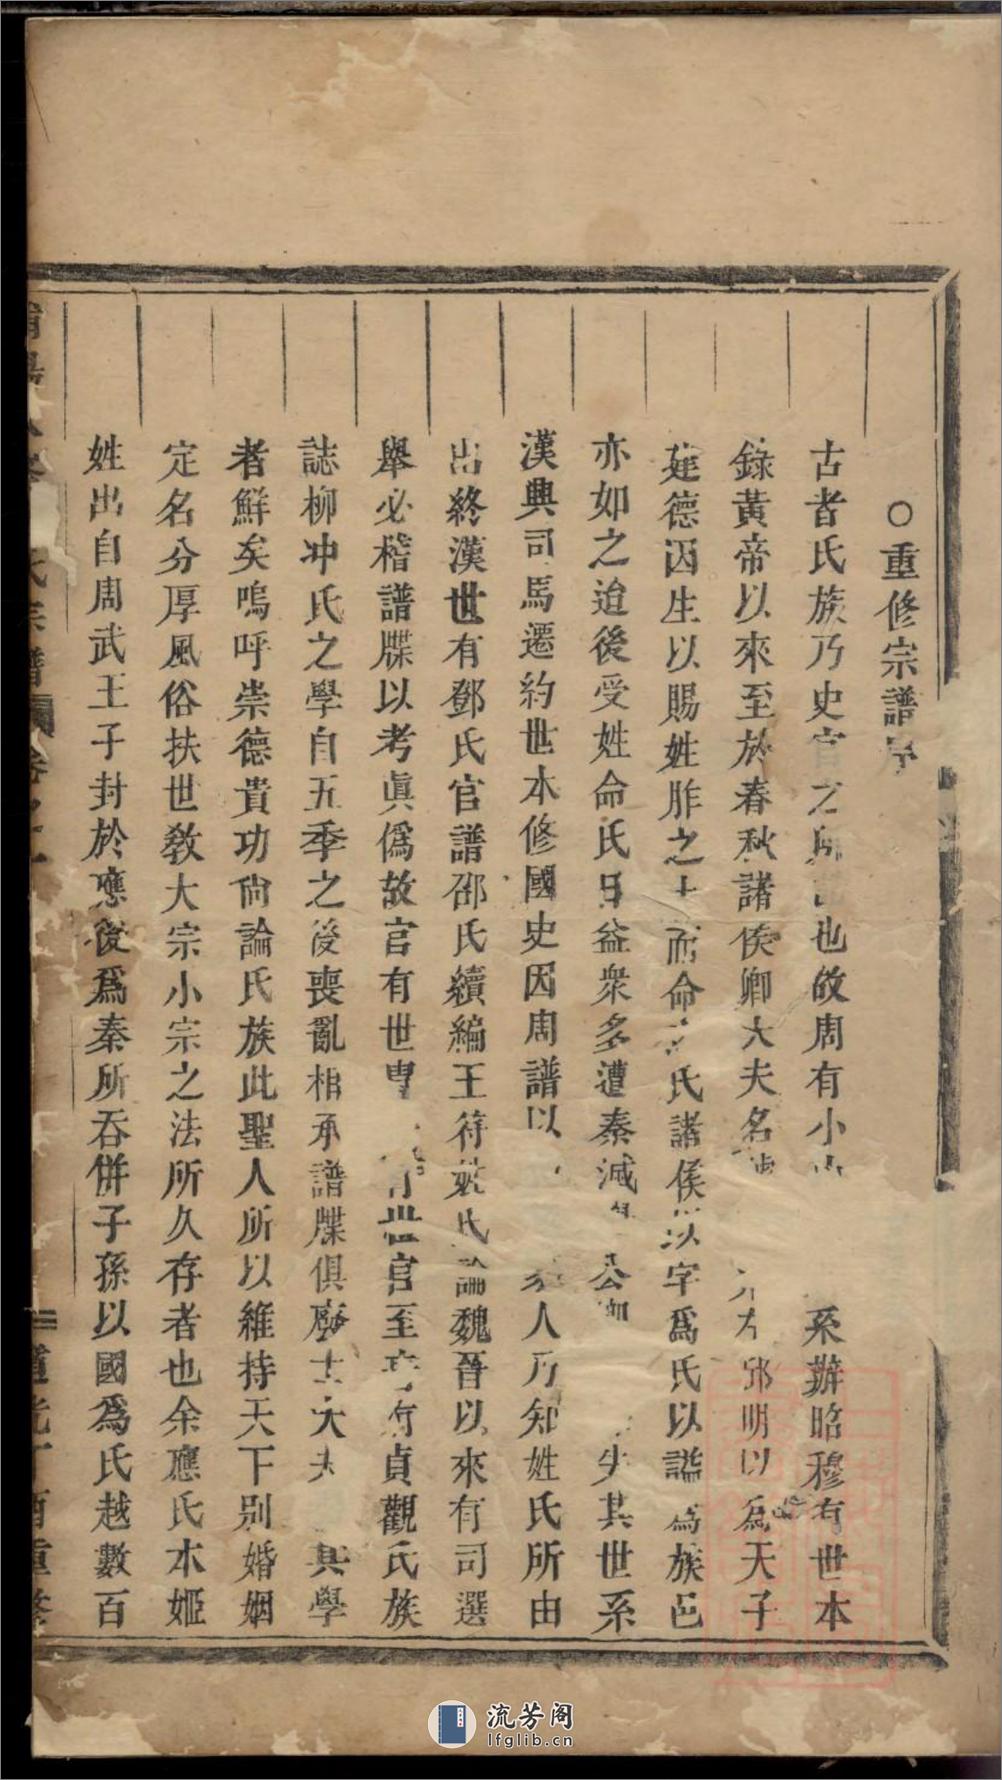 ○重修宗譜序
古者氏族乃史官之所 也故周有小 系辦昭穆有世本
錄黃帝以來至於春秋諸侯卿大夫名 左邱明以為天子
建德因生以賜姓胙之土而命之氏諸侯以字為氏以謚為族邑
亦如之迨後受姓命氏日益衆多遭秦滅 公 失其世系
漢興司馬遷約世本修國史因周譜以 人乃知姓氏所由
出終漢世有鄧氏官譜邵氏續編王符 氏論魏晉以來有司選
舉必稽譜牒以考眞僞故官有世 世官至 貞觀氏族
誌柳冲氏之學自五季之後喪亂相承譜牒俱廢士大夫 其學
者鮮矣嗚呼崇德貴功尚論氏族此聖人所以維持天下別婚姻
定名分厚風俗扶世教大宗小宗之法所久存者也余應氏本姬
姓出自周武王子封於應後爲秦所吞併子孫以國爲氏越數百
氏宗譜 卷之一 二 道光丁酉重修
流芳阁
lfglib.cn